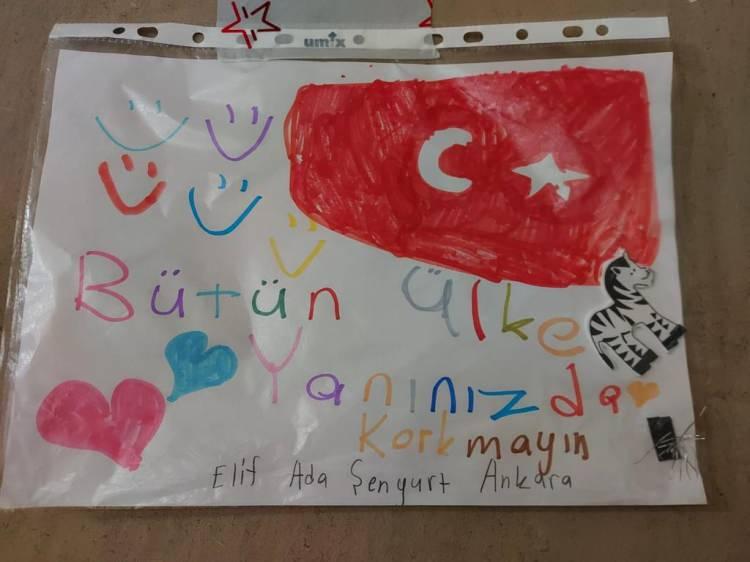 umix
Bütün Ülke
Yanınızda
Korkmayın
Elif Ada Şenyurt Ankara